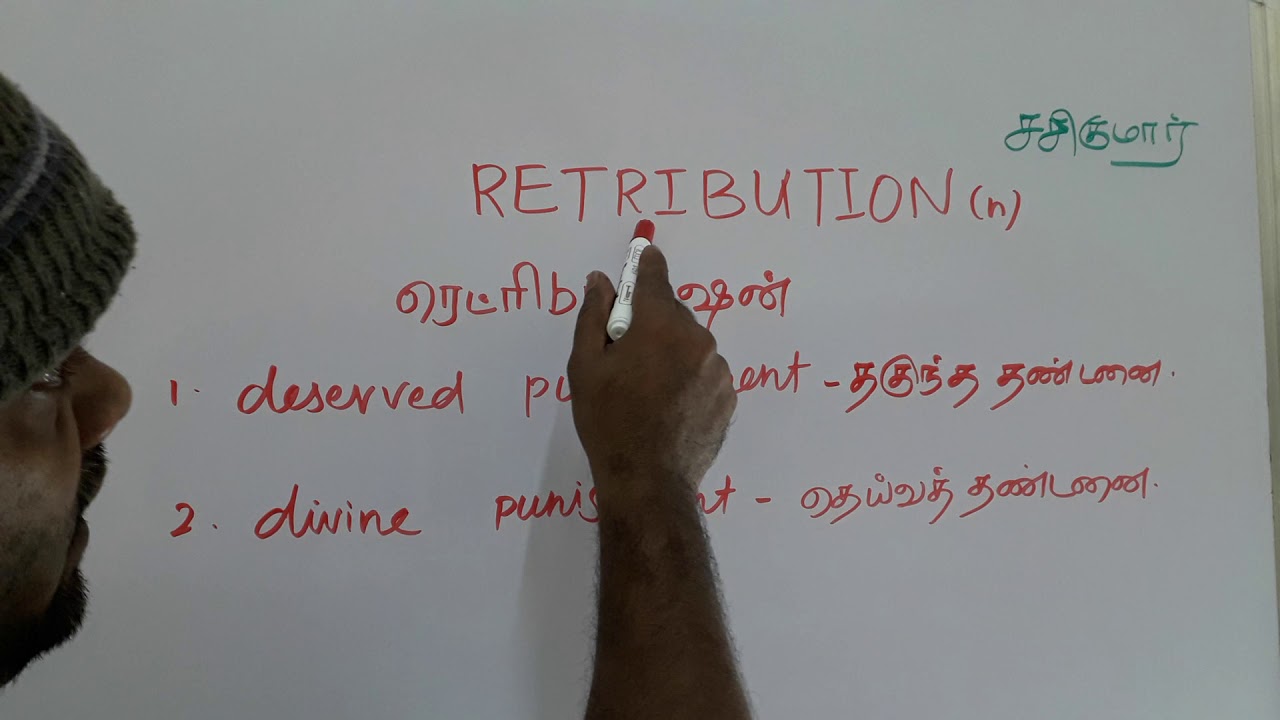 சசிகுமார்
RETRIBUTION (n)
ரெட்ரிb ஷன்
1. deserved pu ent - தகுந்த தண்டனை.
2. divine punis nt - தெய்வத் தண்டனை.